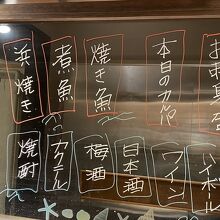 本日のカルパ
焼き魚
煮魚
浜焼き
ハイボール
ワイン
日本酒
梅酒
カクテル
焼酎